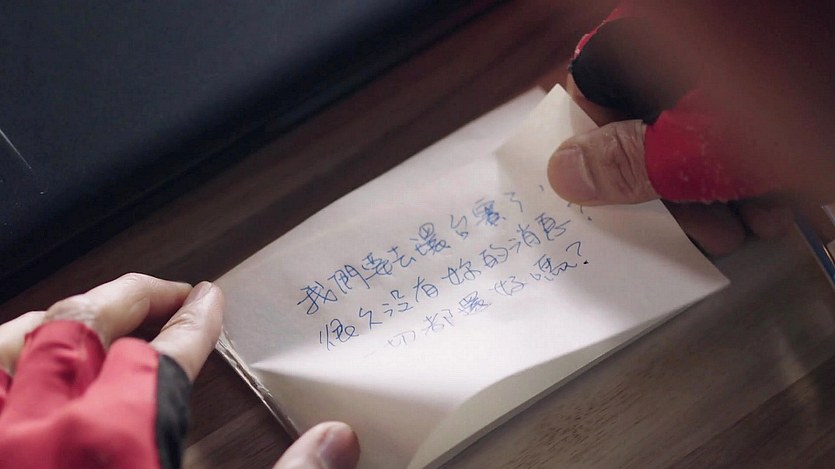 我們要去環台賽了，
很久沒有妳的消息，
一切都還好嗎？